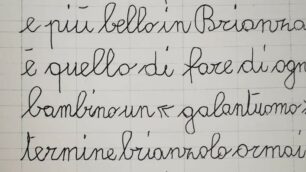 e più bello in Brianza
è quello di fare di ogn
bambino un galantuomo
termine brianzolo ormai